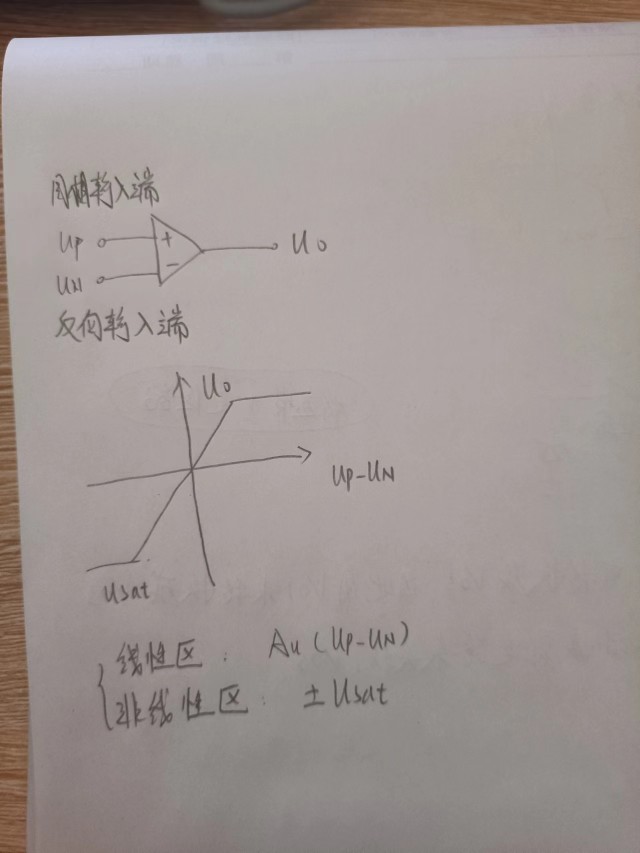 同相输入端
UP + U0
UN -
反向输入端
U0
UP-UN
Usat
线性区： Au (UP-UN)
非线性区： ±Usat